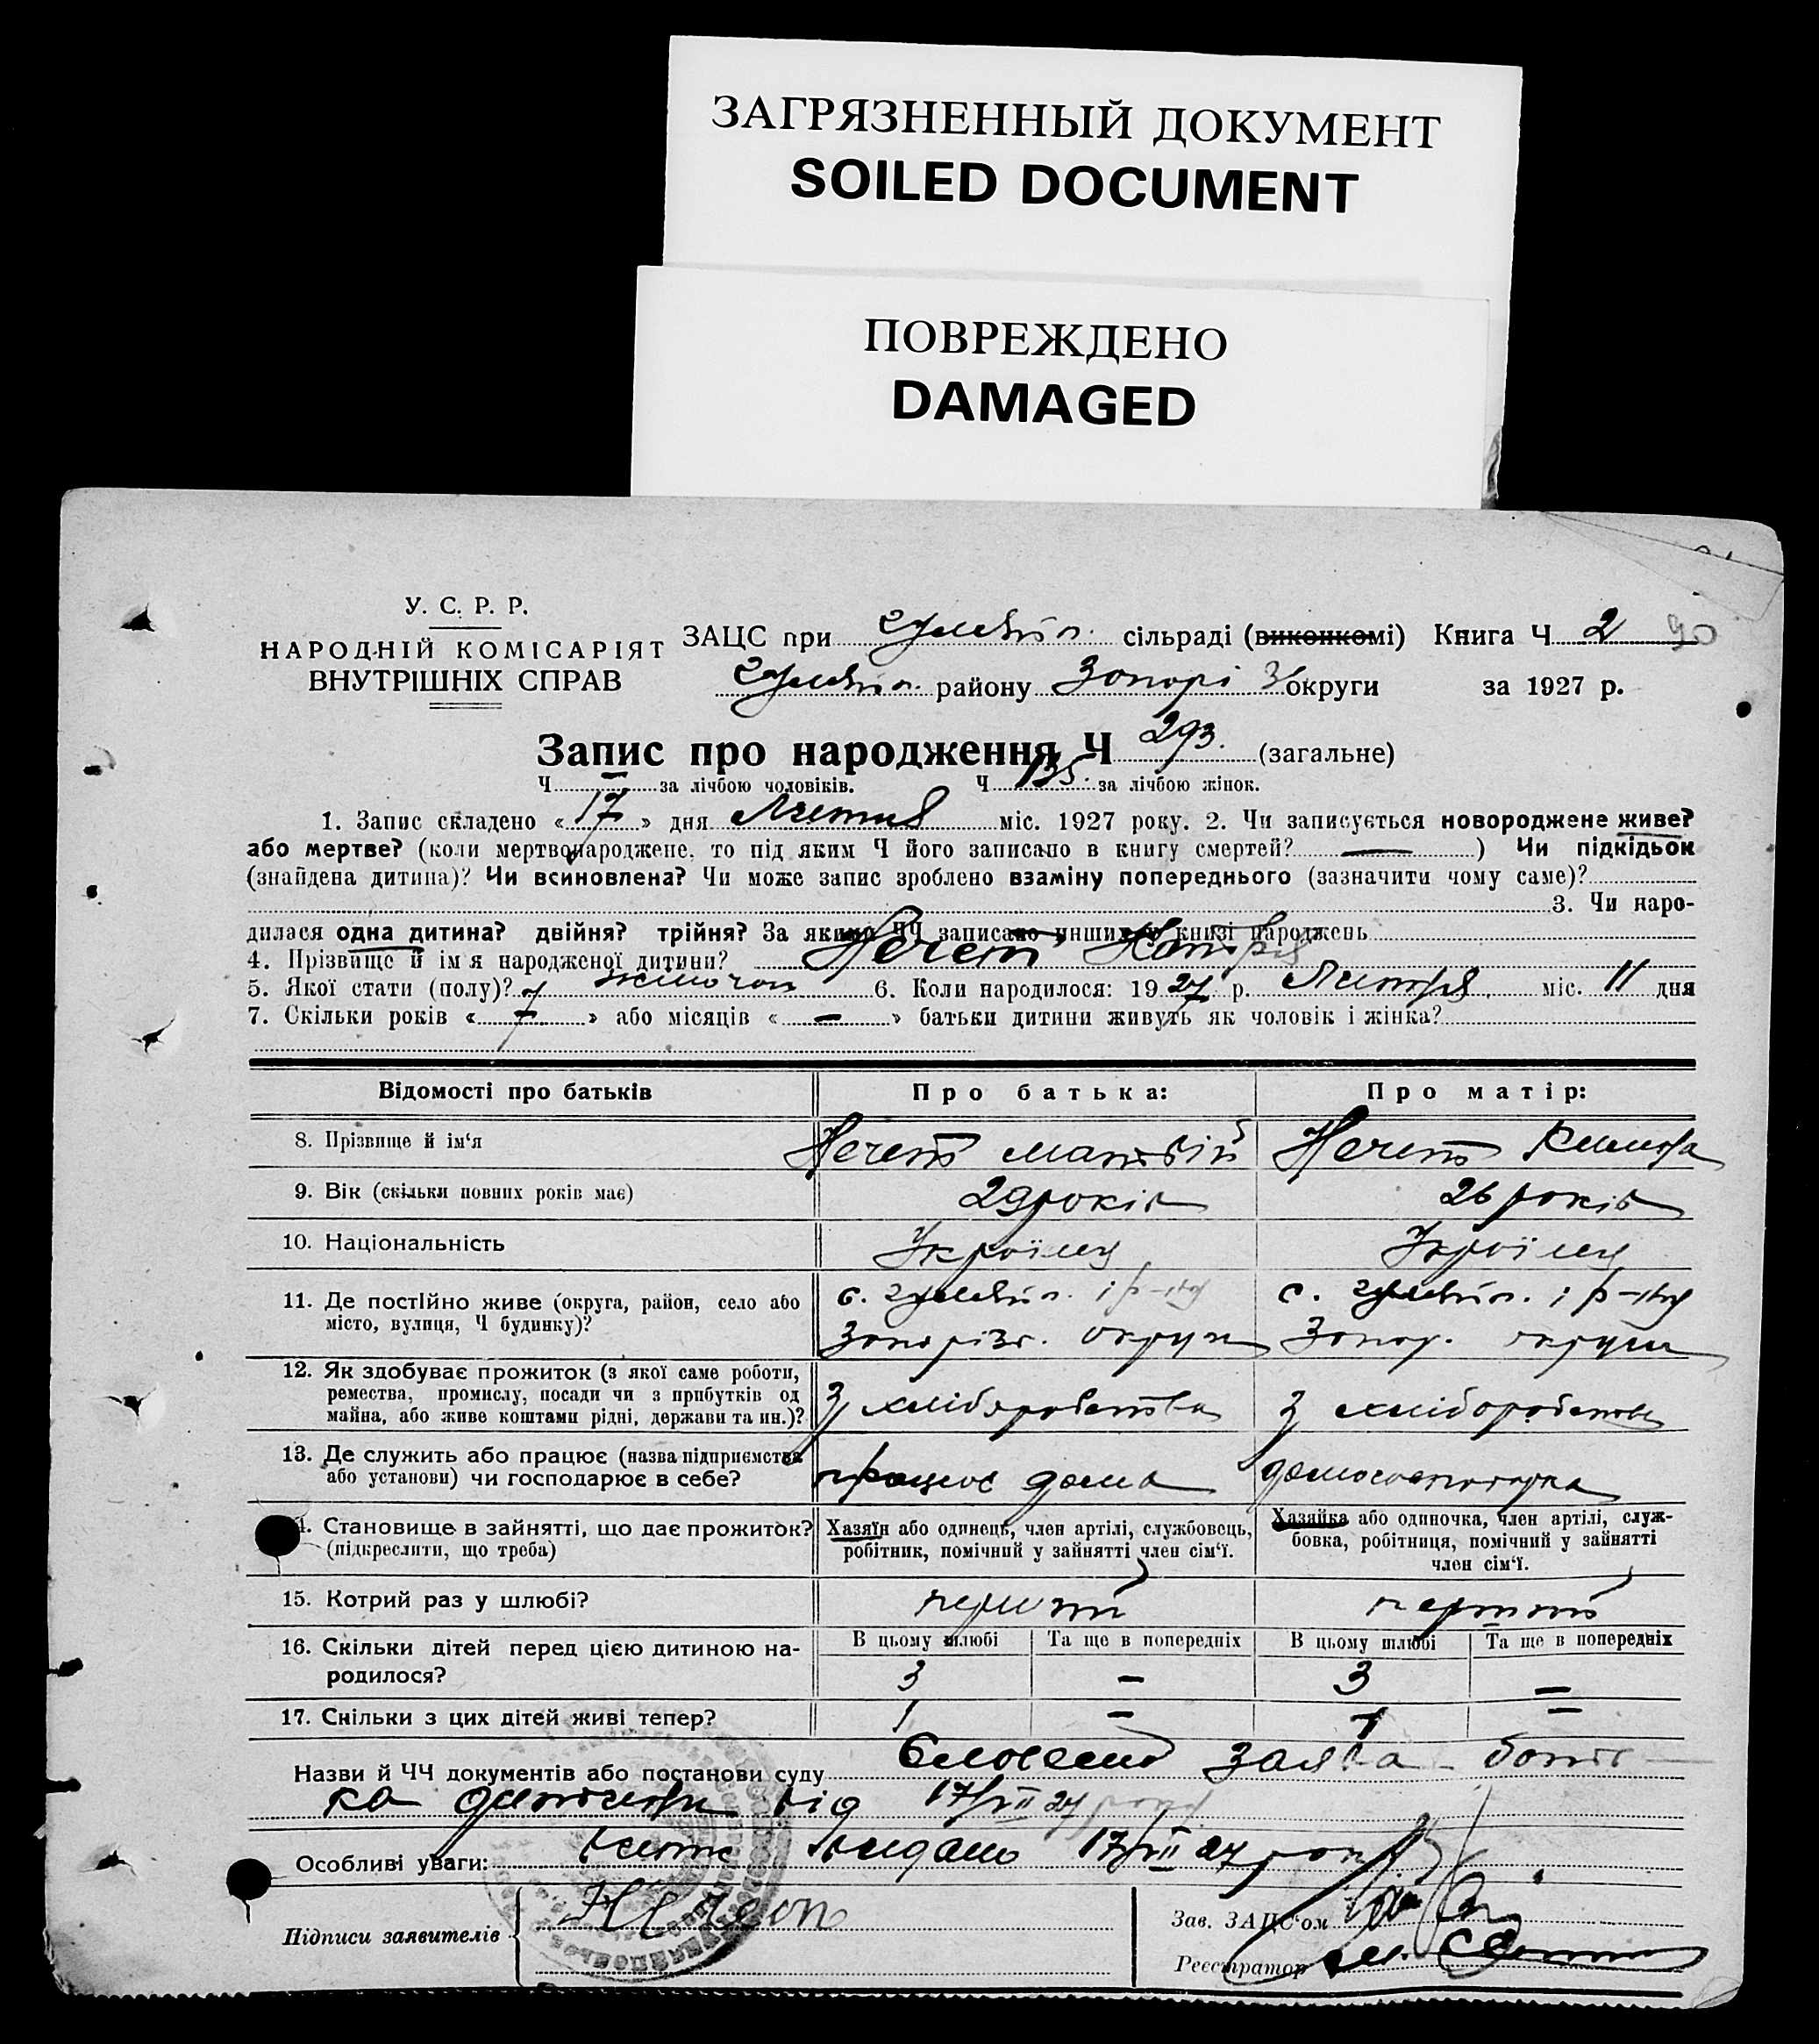 ЗАГРЯЗНЕННЫЙ ДОКУМЕНТ
SOILED DOCUMENT
ПОВРЕЖДЕНО
DAMAGED
У. С. Р. Р.
НАРОДНІЙ КОМІСАРІЯТ
ВНУТРІШНІХ СПРАВ
ЗАЦС при Гуляйпіл. сільраді (виконкомі) Книга Ч 2 90
Гуляйпіл. району Запорізь округи за 1927 р.
Запис про народження Ч 293. (загальне)
Ч — за лічбою чоловіків. Ч 135. за лічбою жінок.
1. Запис складено « 17 » дня Лютня міс. 1927 року. 2. Чи записується новороджене живе?
або мертве? (коли мертвонароджене, то під яким Ч його записано в книгу смертей? — ) Чи підкідьок
(знайдена дитина)? Чи всиновлена? Чи може запис зроблено взаміну попереднього (зазначити чому саме)?
3. Чи наро-
дилася одна дитина? двійня? трійня? За якими ЧЧ записано инших у книзі народжень
4. Прізвище й ім'я народженої дитини? Нечет
5. Якої стати (полу)? жіночої 6. Коли народилося: 1927 р. міс. 11 дня
7. Скільки років « 7 » або місяців « — » батьки дитини живуть як чоловік і жінка?
Відомості про батьків Про батька: Про матір:
8. Прізвище й ім'я Нечет Матвій Нечет
9. Вік (скільки повних років має) 29 років 26 років
10. Національність Україн Україн
11. Де постійно живе (округа, район, село або
місто, вулиця, Ч будинку)?
с. Гуляйпіл. і р-ну с. Гуляйпіл. і р-ну
Запорізь. округи Запор. округи
12. Як здобуває прожиток (з якої саме роботи,
ремества, промислу, посади чи з прибутків од
майна, або живе коштами рідні, держави та ин.)?
З хліборобства З хліборобства
13. Де служить або працює (назва підприємства
або установи) чи господарює в себе?
працює дома домогосподарка
14. Становище в зайнятті, що дає прожиток?
(підкреслити, що треба)
Хазяїн або одинець, член артілі, службовець,
робітник, помічний у зайнятті член сім'ї.
Хазяйка або одиночка, член артілі, служ-
бовка, робітниця, помічний у зайнятті
член сім'ї.
15. Котрий раз у шлюбі? перший перший
16. Скільки дітей перед цією дитиною на-
родилося?
В цьому шлюбі Та ще в попередніх В цьому шлюбі Та ще в попередніх
3 — 3 —
17. Скільки з цих дітей живі тепер? 1 — 1 —
Назви й ЧЧ документів або постанови суду Словесна заява бать-
ка дитини від 17/VII 27 року
Особливі уваги: видано 17/VII 27 року
Підписи заявителів
Зав. ЗАЦС'ом
Реєстратор